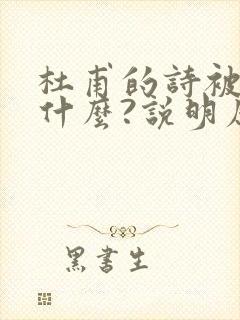 杜甫的詩被
什麼?説明
黑書生